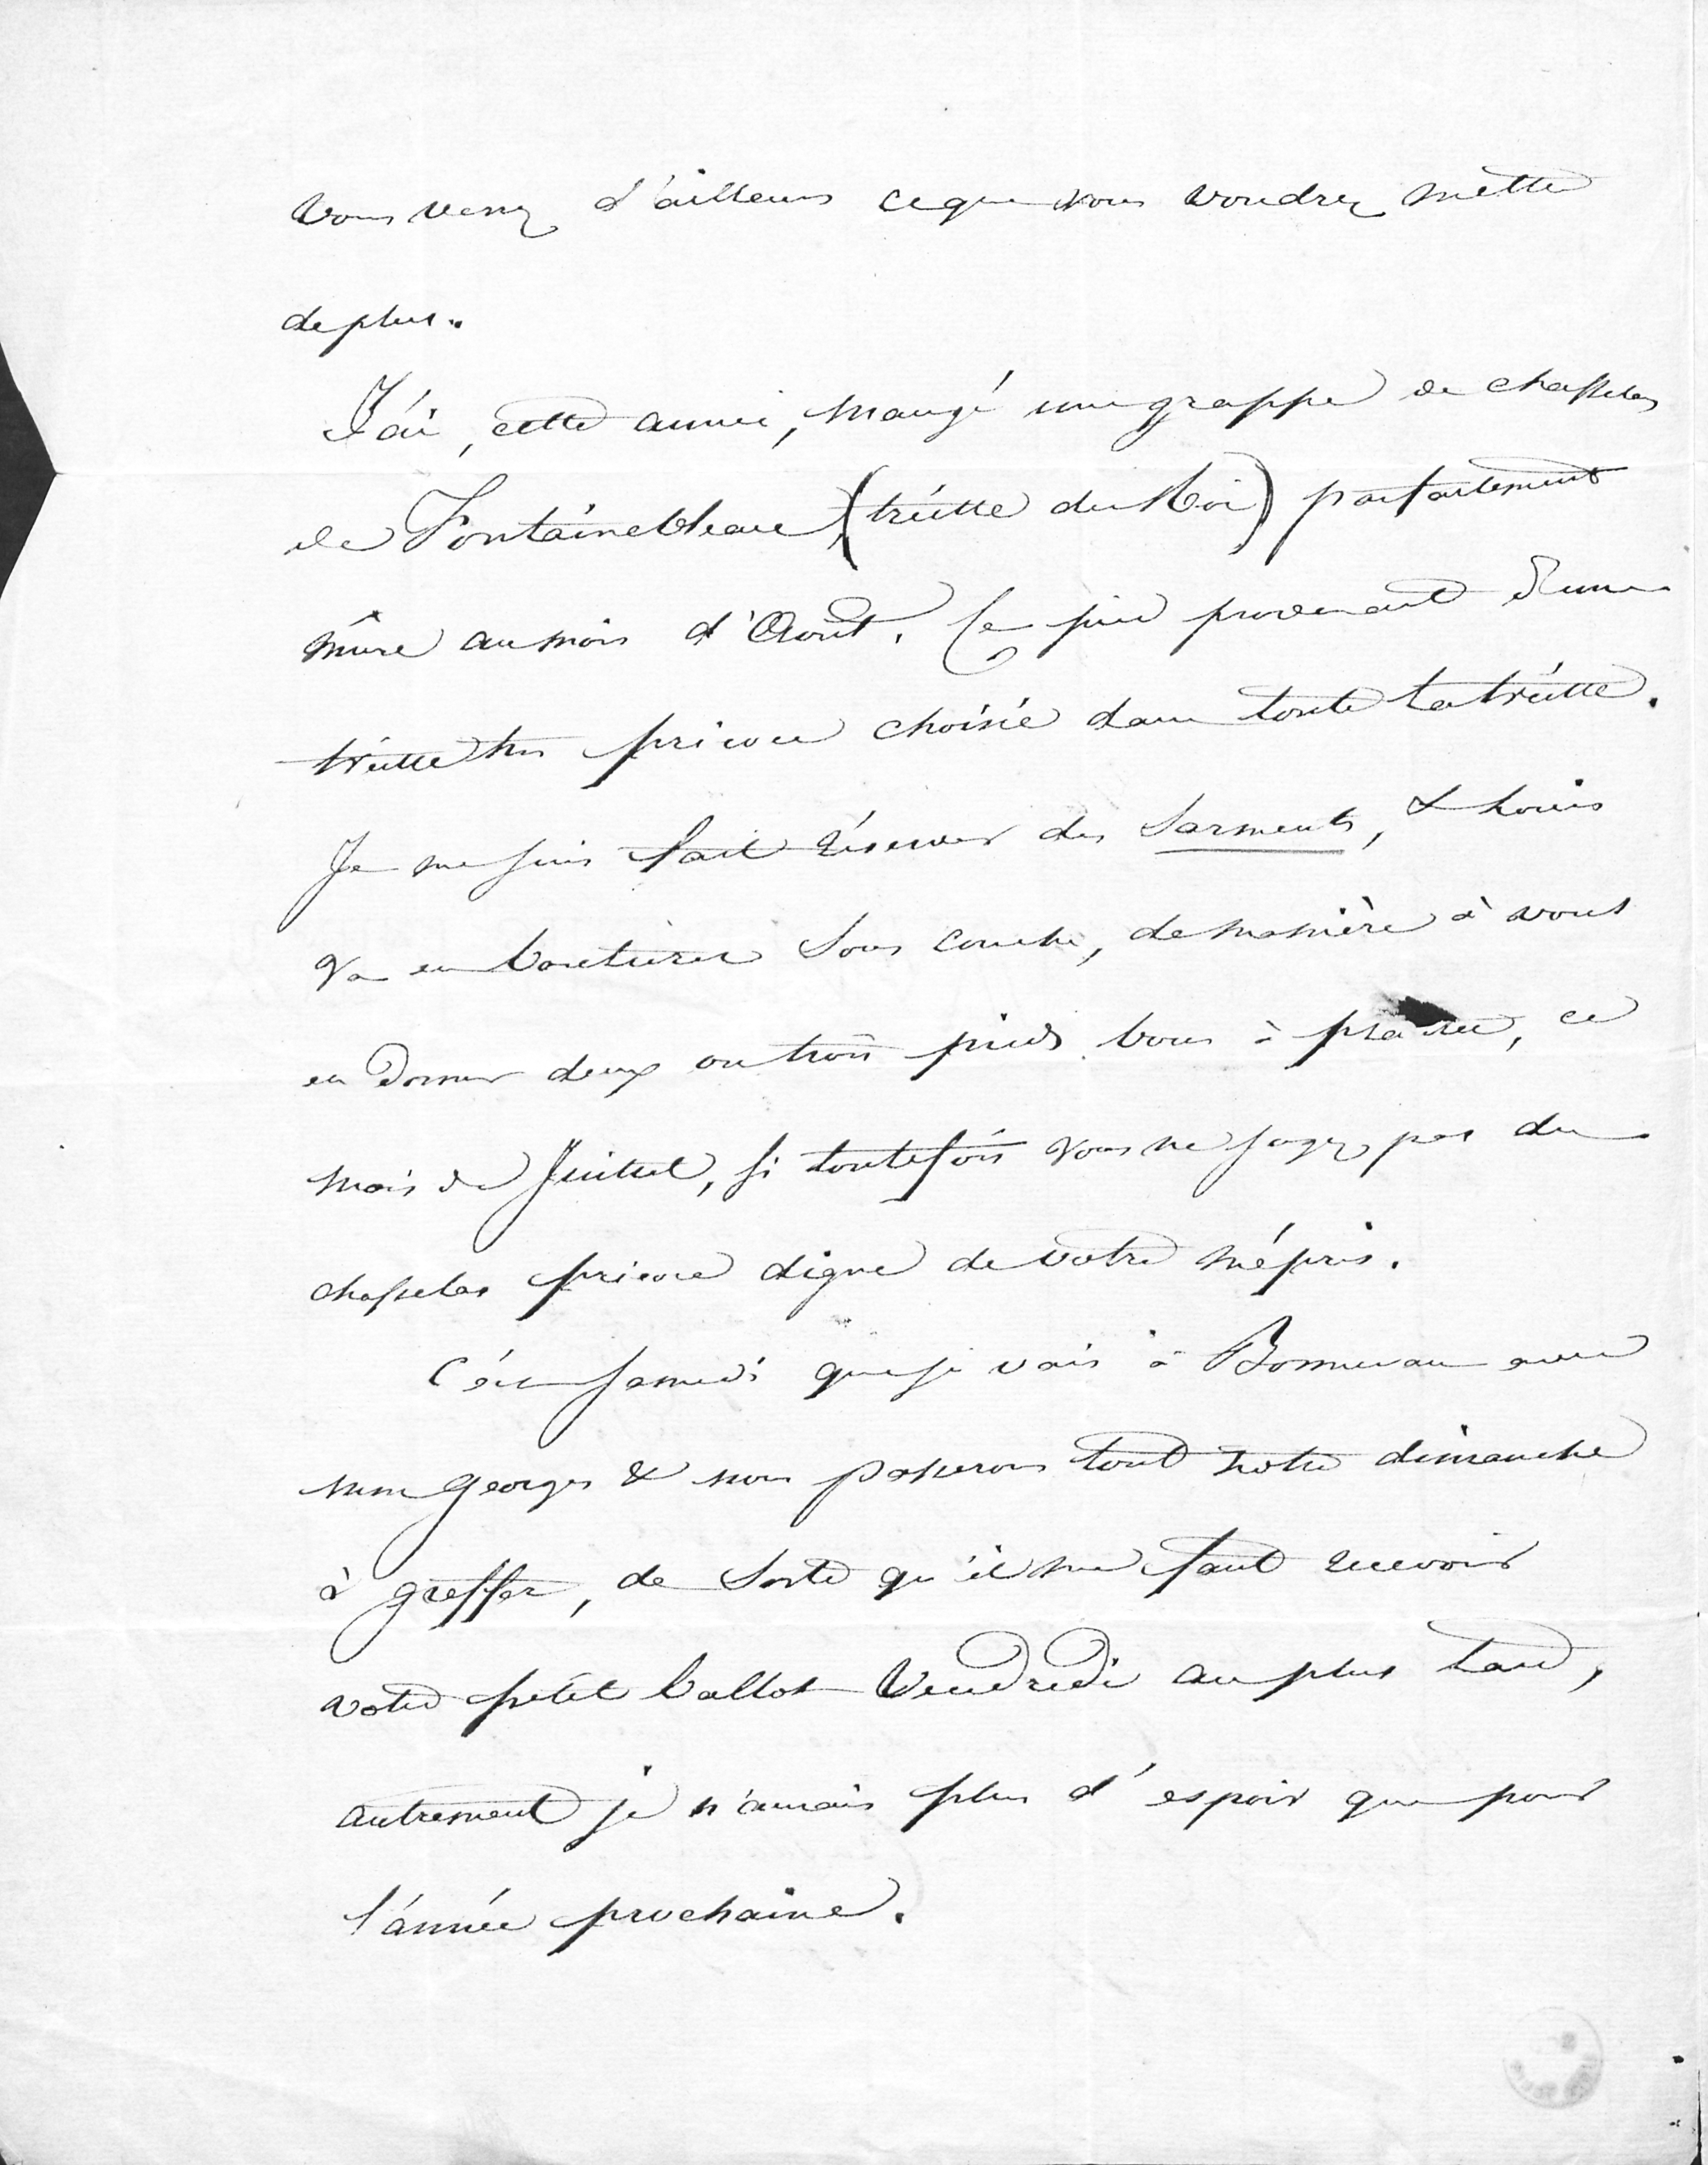 vous verrez d'ailleurs ce que vous voudrez mettre
de plus.
J'ai, cette année, mangé une grappe de chasselas
de Fontainebleau, (treille du Roi) parfaitement
mûre au mois d'Août. Ce pied provenant d'une
treille très précoce choisie dans toute la treille.
Je me suis fait réserver des sarments, & Louis
va en bouturer sous couche, de manière à vous
en donner deux ou trois pieds bons à planter, ce
mois de Juillet, si toutefois vous ne jugez pas du
chasselas précoce digne de votre mépris.
C'est samedi que je vais à Bonnevau avec
mm Georges & nous passerons tout notre dimanche
à greffer, de sorte qu'il me faut recevoir
votre petit ballot Vendredi au plus tard,
autrement je n'aurais plus d'espoir que pour
l'année prochaine.